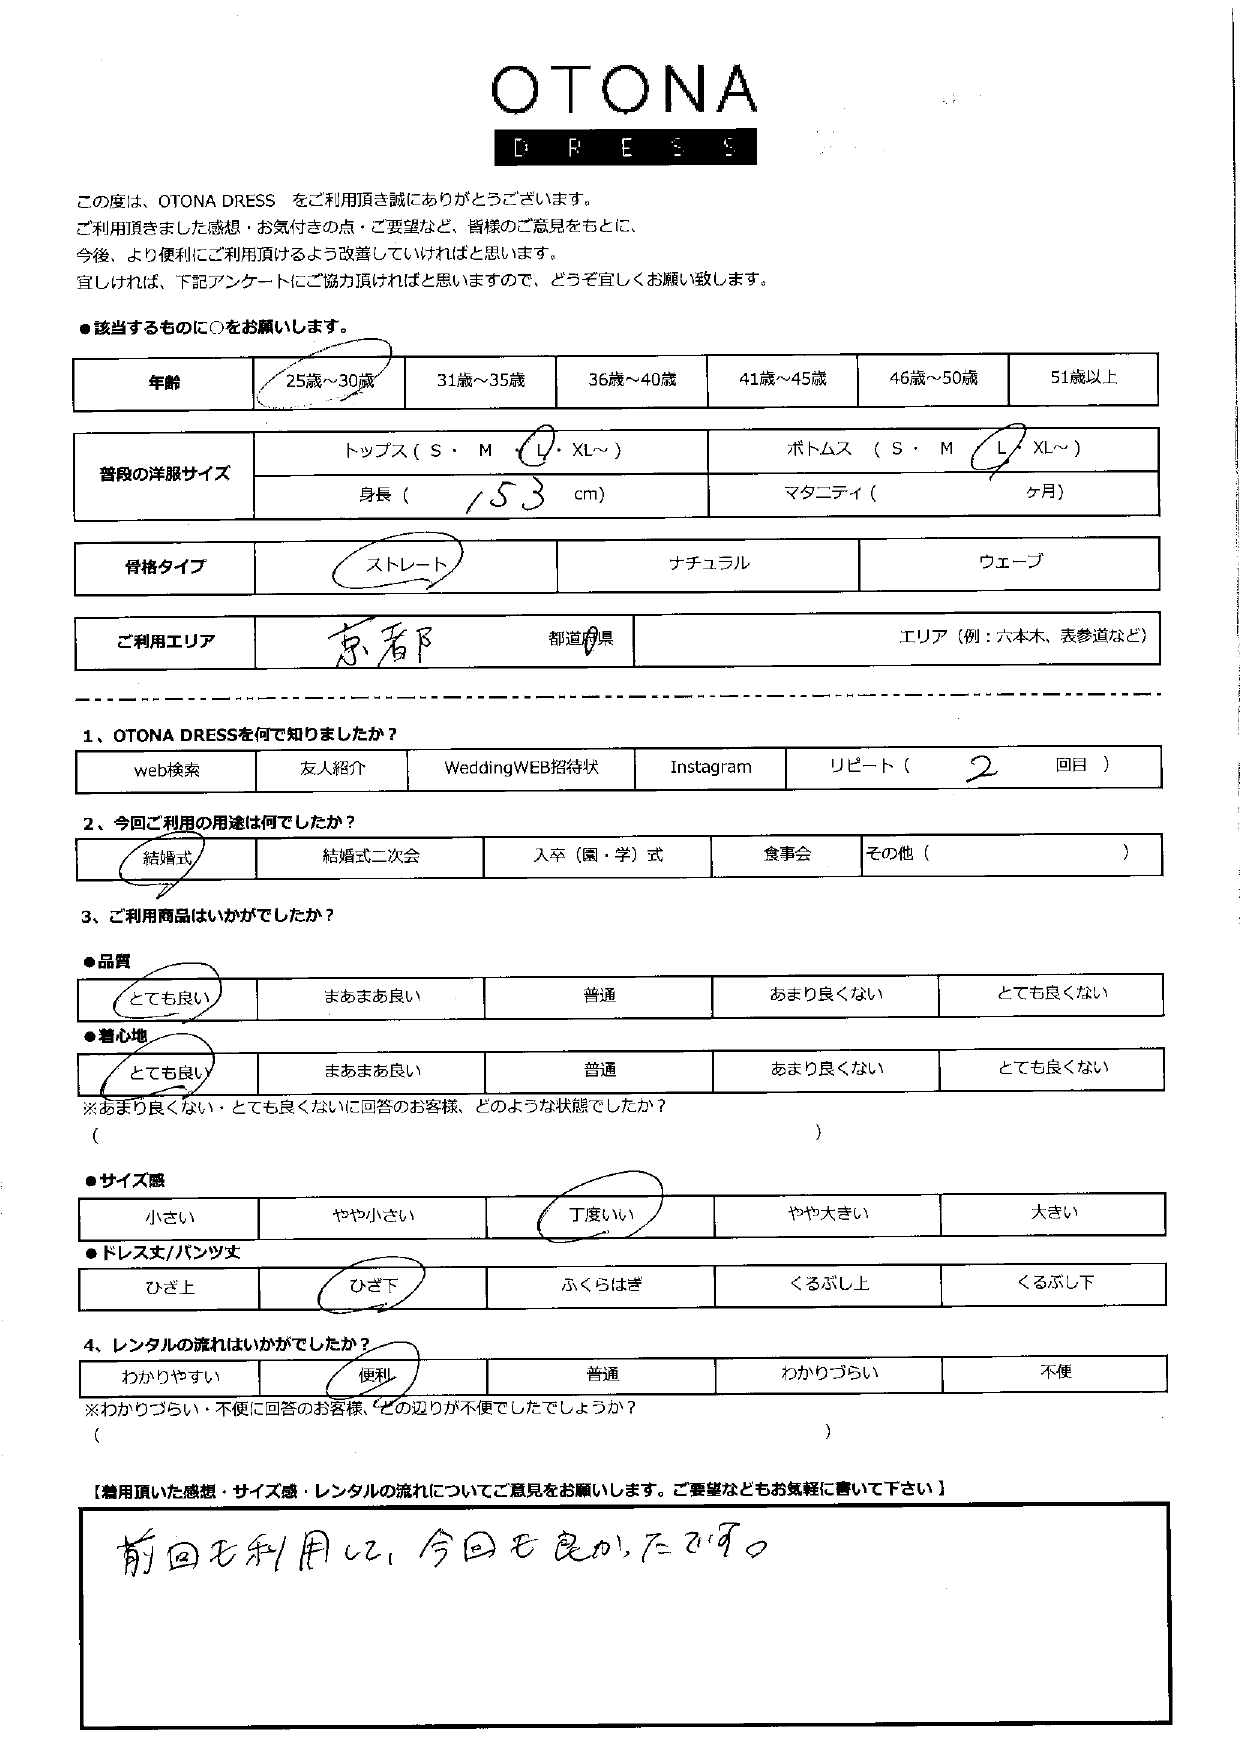 OTONA
DRESS
この度は、OTONA DRESS　をご利用頂き誠にありがとうございます。
ご利用頂きました感想・お気付きの点・ご要望など、皆様のご意見をもとに、
今後、より便利にご利用頂けるよう改善していければと思います。
宜しければ、下記アンケートにご協力頂ければと思いますので、どうぞ宜しくお願い致します。
●該当するものに○をお願いします。
年齢 25歳～30歳 31歳～35歳 36歳～40歳 41歳～45歳 46歳～50歳 51歳以上
普段の洋服サイズ
トップス ( S ・ M ・ L ・ XL～ ) ボトムス ( S ・ M ・ L ・ XL～ )
身長 ( 153 cm) マタニティ ( ケ月)
骨格タイプ ストレート ナチュラル ウェーブ
ご利用エリア 京都 都道府県 エリア（例：六本木、表参道など）
1、OTONA DRESSを何で知りましたか？
web検索 友人紹介 WeddingWEB招待状 Instagram リピート（ 2 回目 ）
2、今回ご利用の用途は何でしたか？
結婚式 結婚式二次会 入卒（園・学）式 食事会 その他（ ）
3、ご利用商品はいかがでしたか？
●品質
とても良い まあまあ良い 普通 あまり良くない とても良くない
●着心地
とても良い まあまあ良い 普通 あまり良くない とても良くない
※あまり良くない・とても良くないに回答のお客様、どのような状態でしたか？
( )
●サイズ感
小さい やや小さい 丁度いい やや大きい 大きい
●ドレス丈/パンツ丈
ひざ上 ひざ下 ふくらはぎ くるぶし上 くるぶし下
4、レンタルの流れはいかがでしたか？
わかりやすい 便利 普通 わかりづらい 不便
※わかりづらい・不便に回答のお客様、どの辺りが不便でしたでしょうか？
( )
【着用頂いた感想・サイズ感・レンタルの流れについてご意見をお願いします。ご要望などもお気軽に書いて下さい】
前回も利用して、今回も良かったです。